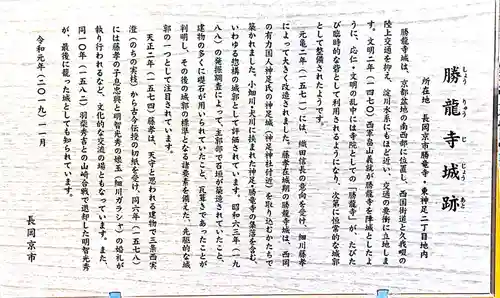 勝龍寺城跡
しょうりゅうじじょうあと
所在地　長岡京市勝竜寺・東神足二丁目地内
勝龍寺城は、京都盆地の南西部に位置し、西国街道と久我畷の
陸上交通を抑え、淀川水系にもほど近い、交通の要衝に立地しま
す。文明二年（一四七〇）西軍畠山義就が勝龍寺を陣城としたよ
うに、応仁・文明の乱中には寺院としての「勝龍寺」が、たびた
び臨時的な砦として利用されるようになり、次第に恒常的な城郭
として整備されたようです。
元亀二年（一五七一）には、織田信長の意向を受け、細川藤孝
によって大きく改造されました。藤孝在城期の勝龍寺城は、西岡
の有力国人神足氏の神足城（神足神社付近）を取り込むかたちで
築かれました。小畑川と犬川に挟まれた神足と勝竜寺の集落を含む、
いわゆる惣構の城郭として評価されています。昭和六三年（一九
八八）の発掘調査によって、主郭部で石垣が築造されていたこと、
建物の多くに礎石が用いられていたこと、瓦葺きであったことが
判明し、その後の城郭の標準となる主要素を備えた、先駆的な城
郭の一つとして注目されています。
天正二年（一五七四）藤孝は、天守と思われる建物で三条西実
澄（のちの実枝）から古今伝授の切紙を受け、同六年（一五七八）
には藤孝の子息忠興と明智光秀の娘玉（細川ガラシャ）の婚礼が
執り行われるなど、文化的な交流の場ともなっています。また、
同一〇年（一五八二）羽柴秀吉との山崎合戦で退却した明智光秀
が、最後に籠った城としても知られています。
令和元年（二〇一九）一一月
長岡京市